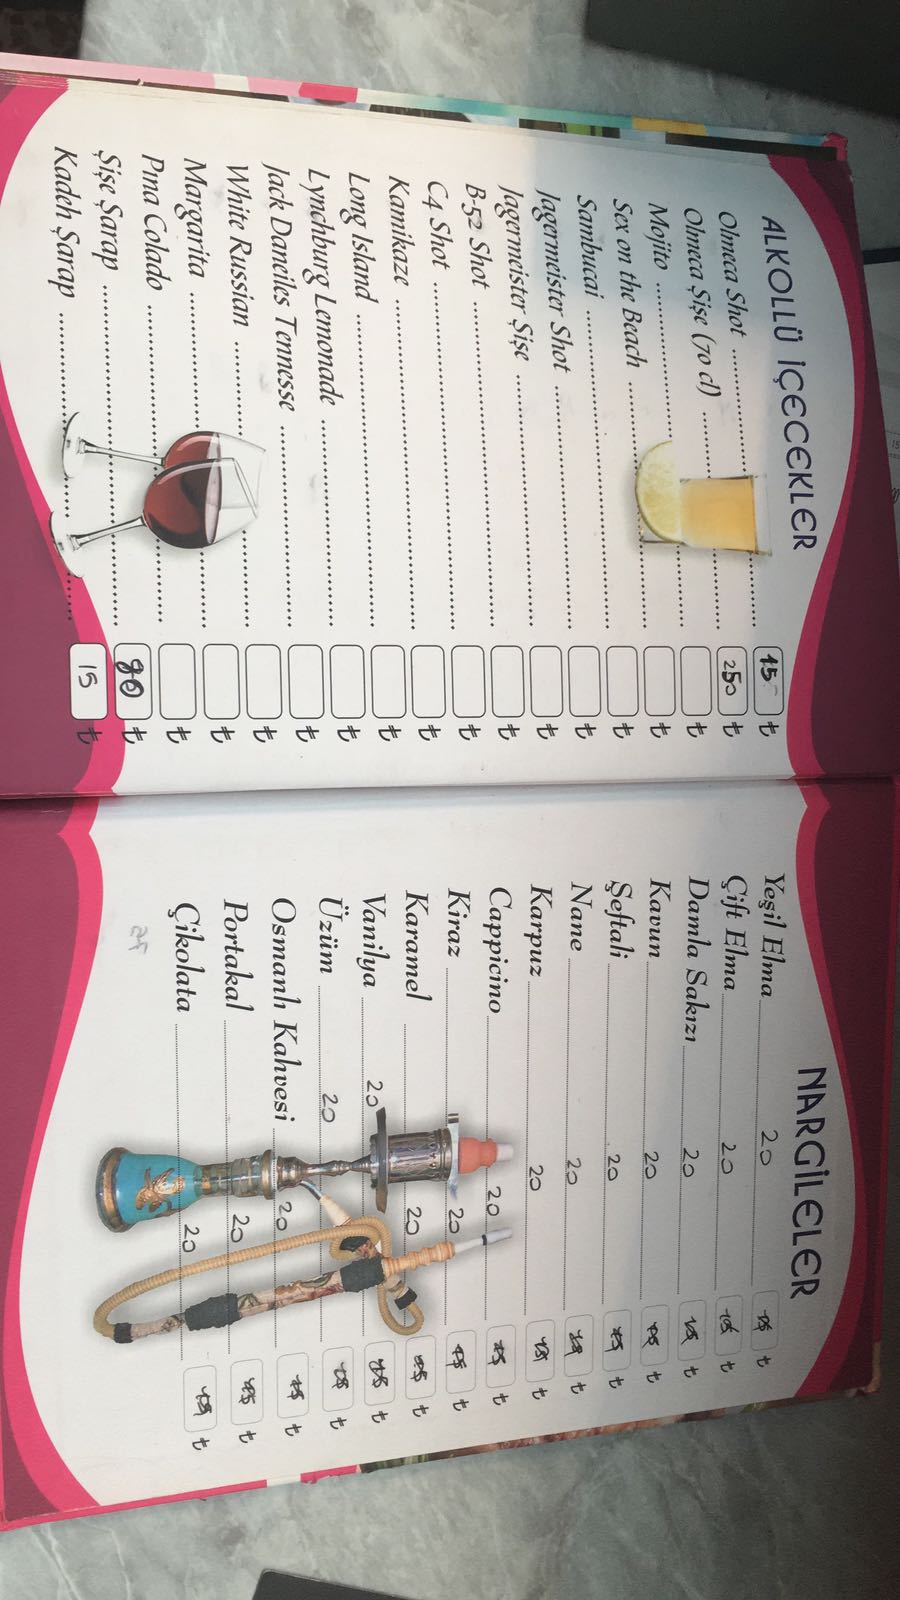 ALKOLLÜ İÇECEKLER
Olmeca Shot 15 ₺
Olmeca Şişe (70 cl) 250 ₺
Mojito ₺
Sex on the Beach ₺
Sambucai ₺
Jagermeister Shot ₺
Jagermeister Şişe ₺
B-52 Shot ₺
C4 Shot ₺
Kamikaze ₺
Long Island ₺
Lynchburg Lemonade ₺
Jack Daneiles Tennesse ₺
White Russian ₺
Margarita ₺
Pına Colado ₺
Şişe Şarap 80 ₺
Kadeh Şarap 15 ₺
NARGİLELER
Yeşil Elma 20 ₺
Çift Elma 20 ₺
Damla Sakızı 20 ₺
Kavun 20 ₺
Şeftali 20 ₺
Nane 20 ₺
Karpuz 20 ₺
Cappicino 20 ₺
Kiraz 20 ₺
Karamel 20 ₺
Vanilya 20 ₺
Üzüm 20 ₺
Osmanlı Kahvesi 20 ₺
Portakal 20 ₺
Çikolata 20 ₺